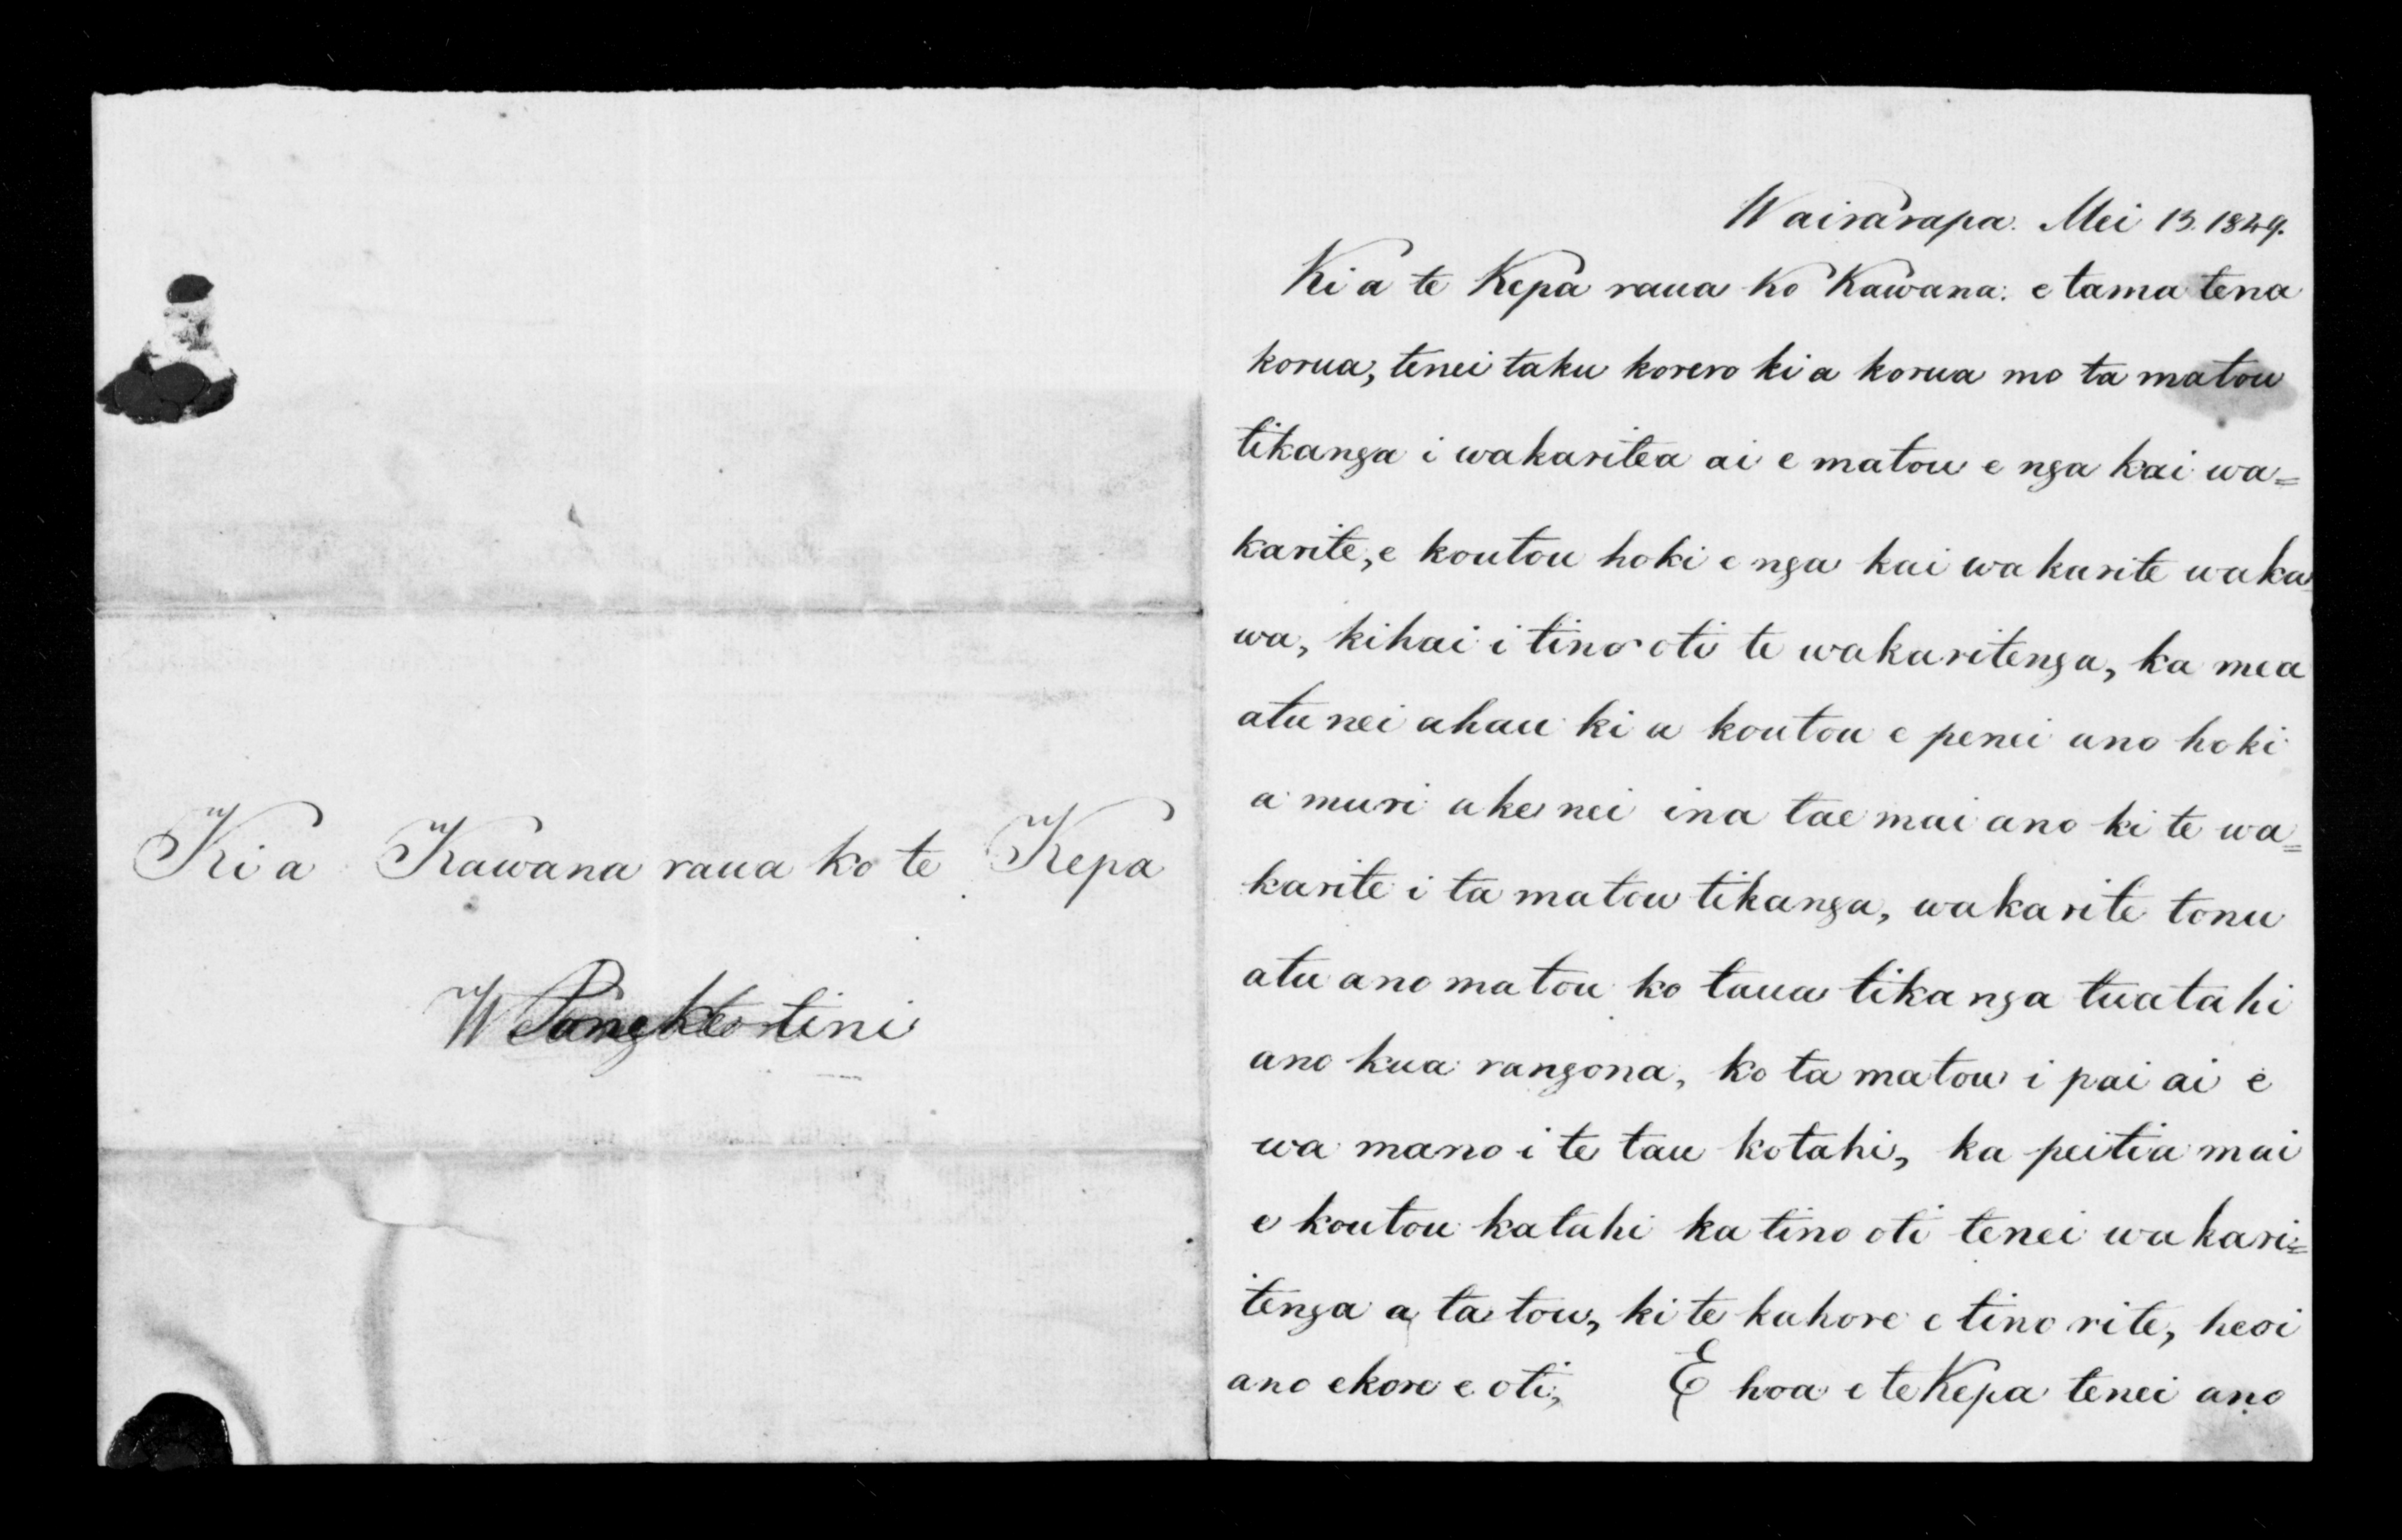 Ki a Kawana raua ko te Kepa
Wairarapa. Mei 13. 1849.
Ki a te Kepa raua ko Kawana: e tama tena
korua, tenei taku korero ki a korua mo ta matou
tikanga i wakaritea ai e matou e nga kai wa=
karite, e koutou hoki e nga kai wakarite waka
wa, kihai i tino oti te wakaritenga, ka mea
atu nei ahau ki a koutou e penei ano hoki
a muri ake nei ina tae mai ano ki te wa=
karite i ta matou tikanga, wakarite tonu
atu ano matou ko taua tikanga tuatahi
ano kua rangona, ko ta matou i pai ai e
wa mano i te tau kotahi, ka peitia mai
e koutou katahi ka tino oti tenei wakari=
tenga a ta tou, ki te kahore e tino rite, heoi
ano ekore e oti, E hoa e te Kepa tenei ano